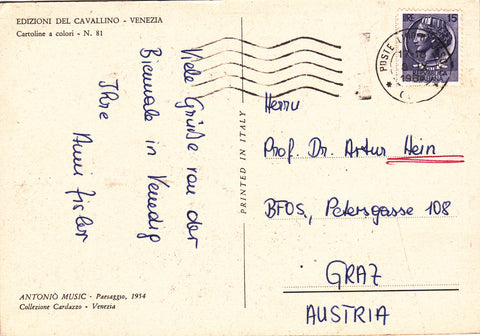 EDIZIONI DEL CAVALLINO - VENEZIA
Cartoline a colori - N. 81
Viele Grüße von der
Biennale in Venedig
Ihre
Anni Fisler
ANTONIO MUSIC - Paesaggio, 1954
Collezione Cardazzo - Venezia
PRINTED IN ITALY
LIRE 15
POSTE
Herrn
Prof. Dr. Artur Hein
BFOS, Petersgasse 108
GRAZ
AUSTRIA